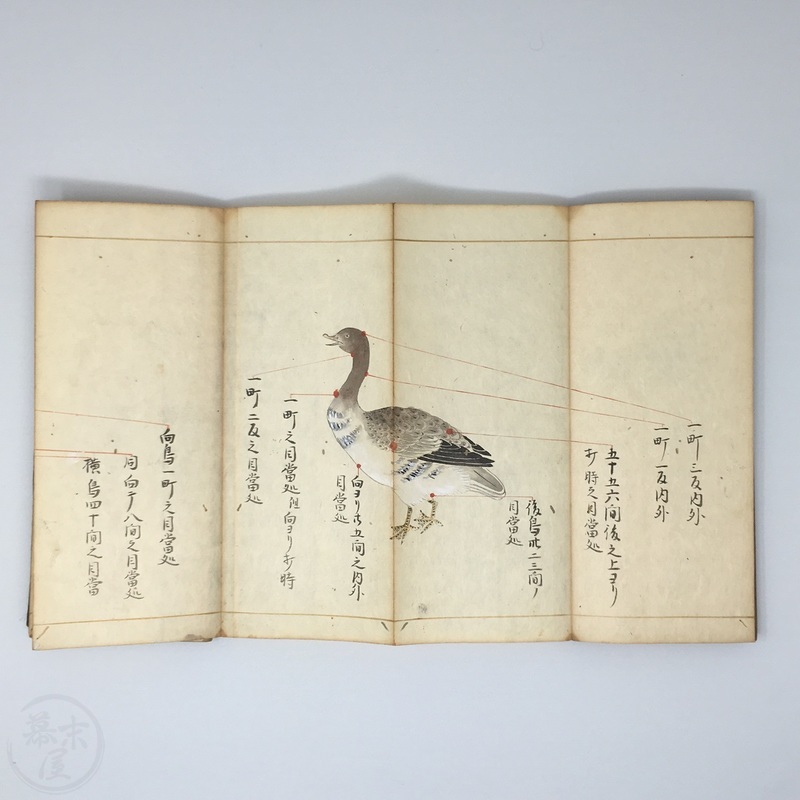 一町三反内外
一町一反内外
五十五六間後之上ヨリ
打時之目當処
後鳥 二三間ノ
目當処
向ヨリ 五間之内外
目當処
一町之目當処但向ヨリ打時
一町二反之目當処
向鳥一町之目當処
同向テ八間之目當処
横鳥四十間之目當
幕末屋